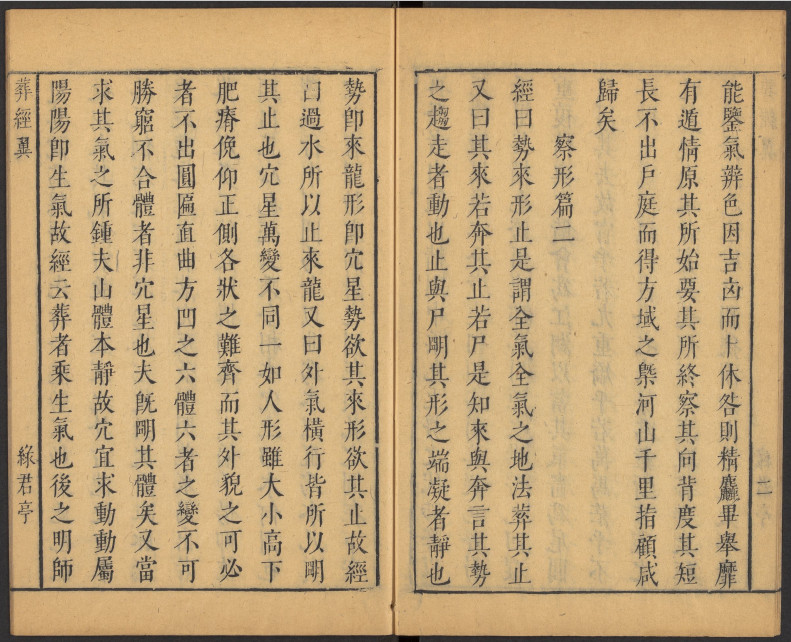 能鑒氣辨色因吉凶而卜休咎則精麤畢舉靡
有遁情原其所始要其所終察其向背度其短
長不出戶庭而得方域之槩河山千里指顧咸
歸矣
察形篇二
經曰勢來形止是謂全氣全氣之地法葬其止
又曰其來若奔其止若尸是知來與奔言其勢
之趨走者動也止與尸明其形之端凝者靜也
二
勢卽來龍形卽穴星勢欲其來形欲其止故經
曰過水所以止來龍又曰外氣橫行皆所以明
其止也穴星萬變不同一如人形雖大小高下
肥瘠俛仰正側各狀之難齊而其外貌之可必
者不出圓匾直曲方凹之六體六者之變不可
勝窮不合體者非穴星也夫旣明其體矣又當
求其氣之所鍾夫山體本靜故穴宜求動動屬
陽陽卽生氣故經云葬者乘生氣也後之明師
葬經翼
綠君亭